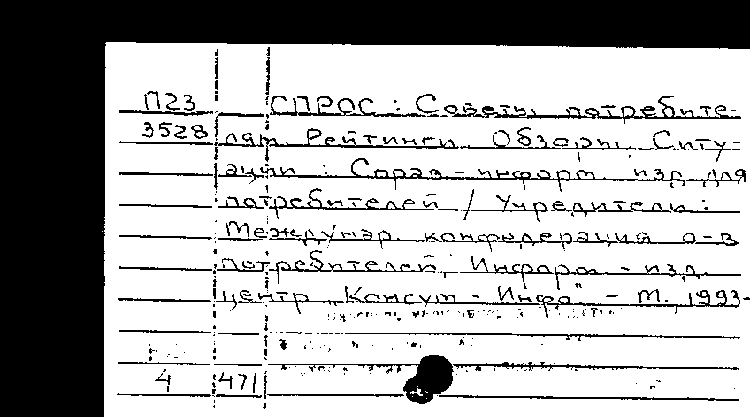 П23 СПРОС : Советы потребите-
3528 лям. Рейтинги. Обзоры. Ситу-
ации : Справ.-информ. изд. для
потребителей / Учредители:
Междунар. конфедерация о-в
потребителей, Информ.-изд.
центр „Консум-Инфо“ - М., 1993-
4 471